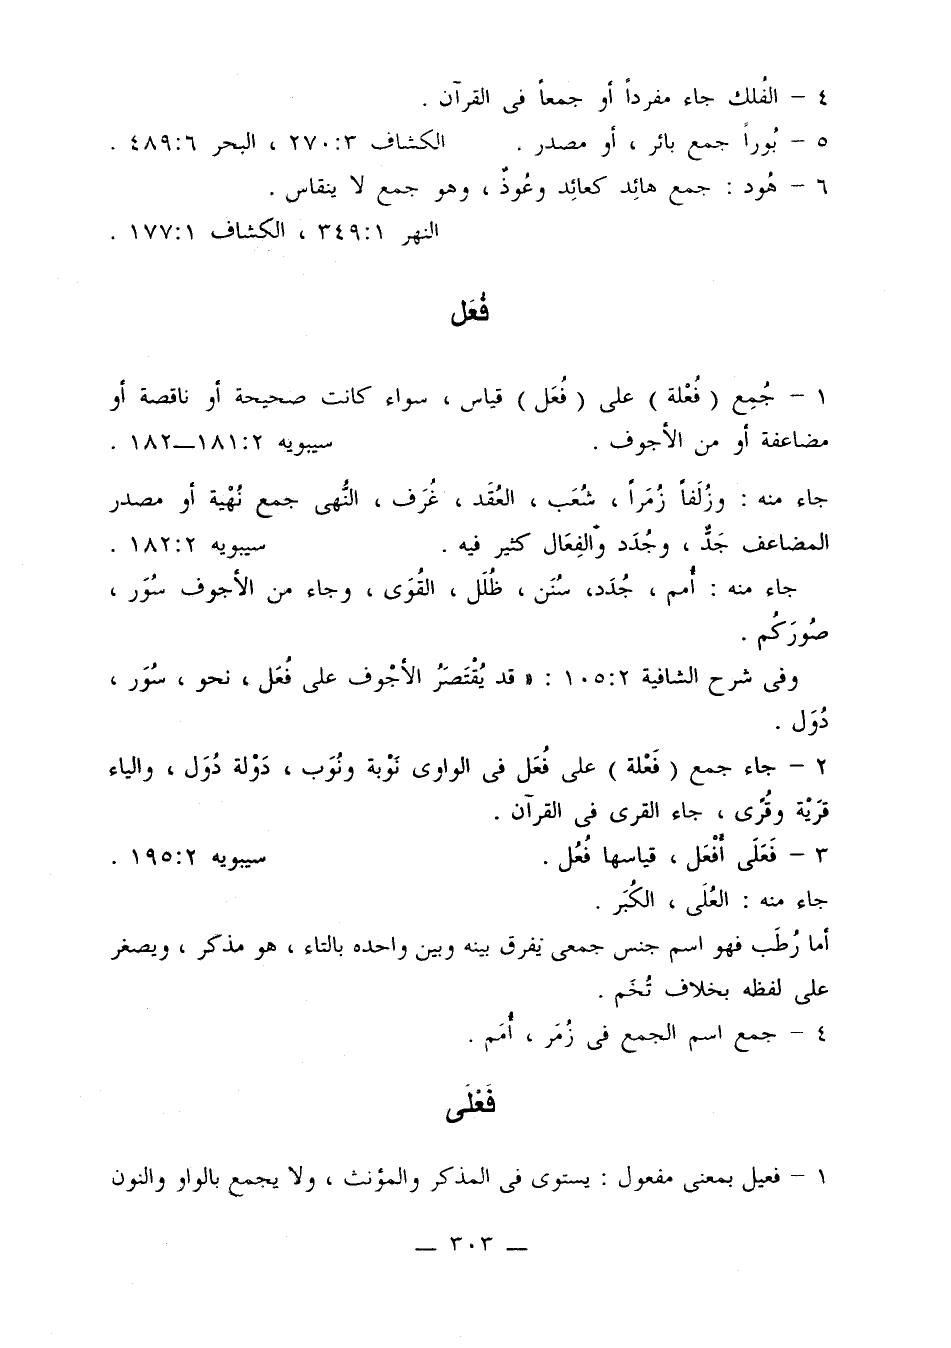 ٤ – الفُلك جاء مفرداً أو جمعاً فى القرآن .
٥ – بُوراً جمع بائر ، أو مصدر . الكشاف ٢٧٠:٣ ، البحر ٤٨٩:٦ .
٦ – هُود : جمع هائِد كعائِد وعُوذٌ ، وهو جمع لا ينقاس .
النهر ٣٤٩:١ ، الكشاف ١٧٧:١ .
فُعَل
١ – جُمِع ( فُعْلة ) على ( فُعَل ) قياس ، سواء كانت صحيحة أو ناقصة أو
مضاعفة أو من الأجوف . سيبويه ١٨١:٢—١٨٢ .
جاء منه : وزُلَفاً زُمَراً ، شُعَب ، العُقَد ، غُرَف ، النُّهى جمع نُهْية أو مصدر
المضاعف جَدٌّ ، وجُدَد والفِعَال كثير فيه . سيبويه ١٨٢:٢ .
جاء منه : أُمم ، جُدَد، سُنَن ، ظُلَل ، القُوَى ، وجاء من الأجوف سُوَر ،
صُورَكُم .
وفى شرح الشافية ١٠٥:٢ : « قد يُقْتَصَرُ الأجْوف على فُعَل ، نحو ، سُوَر ،
دُوَل .
٢ – جاء جمع ( فَعْلة ) على فُعَل فى الواوى نَوْبة ونُوَب ، دَوْلة دُوَل ، والياء
قَرْيْة وقُرًى ، جاء القرى فى القرآن .
٣ – فَعَلَى أَفْعَل ، قياسها فُعُل . سيبويه ١٩٥:٢ .
جاء منه : العُلَى ، الكُبَر .
أما رُطَب فهو اسم جنس جمعى يَفرق بينه وبين واحده بالتاء ، هو مذكر ، ويصغر
على لفظه بخلاف تُخَم .
٤ – جمع اسم الجمع فى زُمَر ، أُمَم .
فَعْلَى
١ – فعيل بمعنى مفعول : يستوى فى المذكر والمؤنث ، ولا يجمع بالواو والنون
— ٣٠٣ —